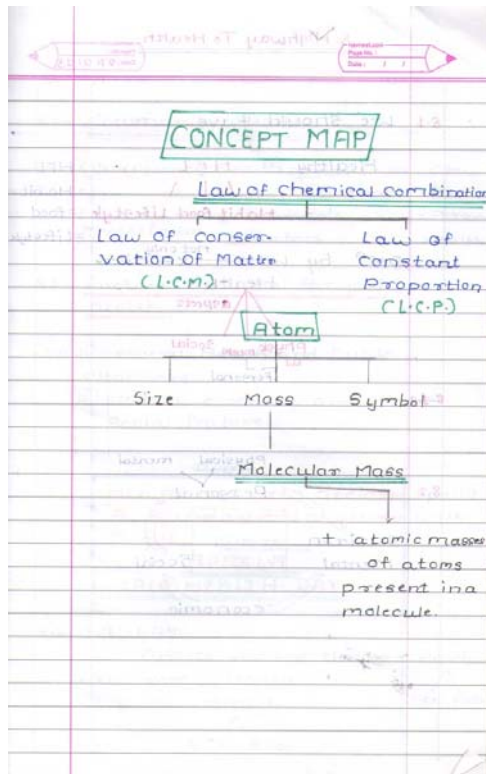 Page No.:
Date: / /
CONCEPT MAP
Law of chemical combination
Law of conser-
vation of Matter
(L.C.M.)
Law of
constant
Proportion
(L.C.P.)
Atom
Size Mass Symbol
Molecular Mass
+ atomic masses
of atoms
present in a
molecule.